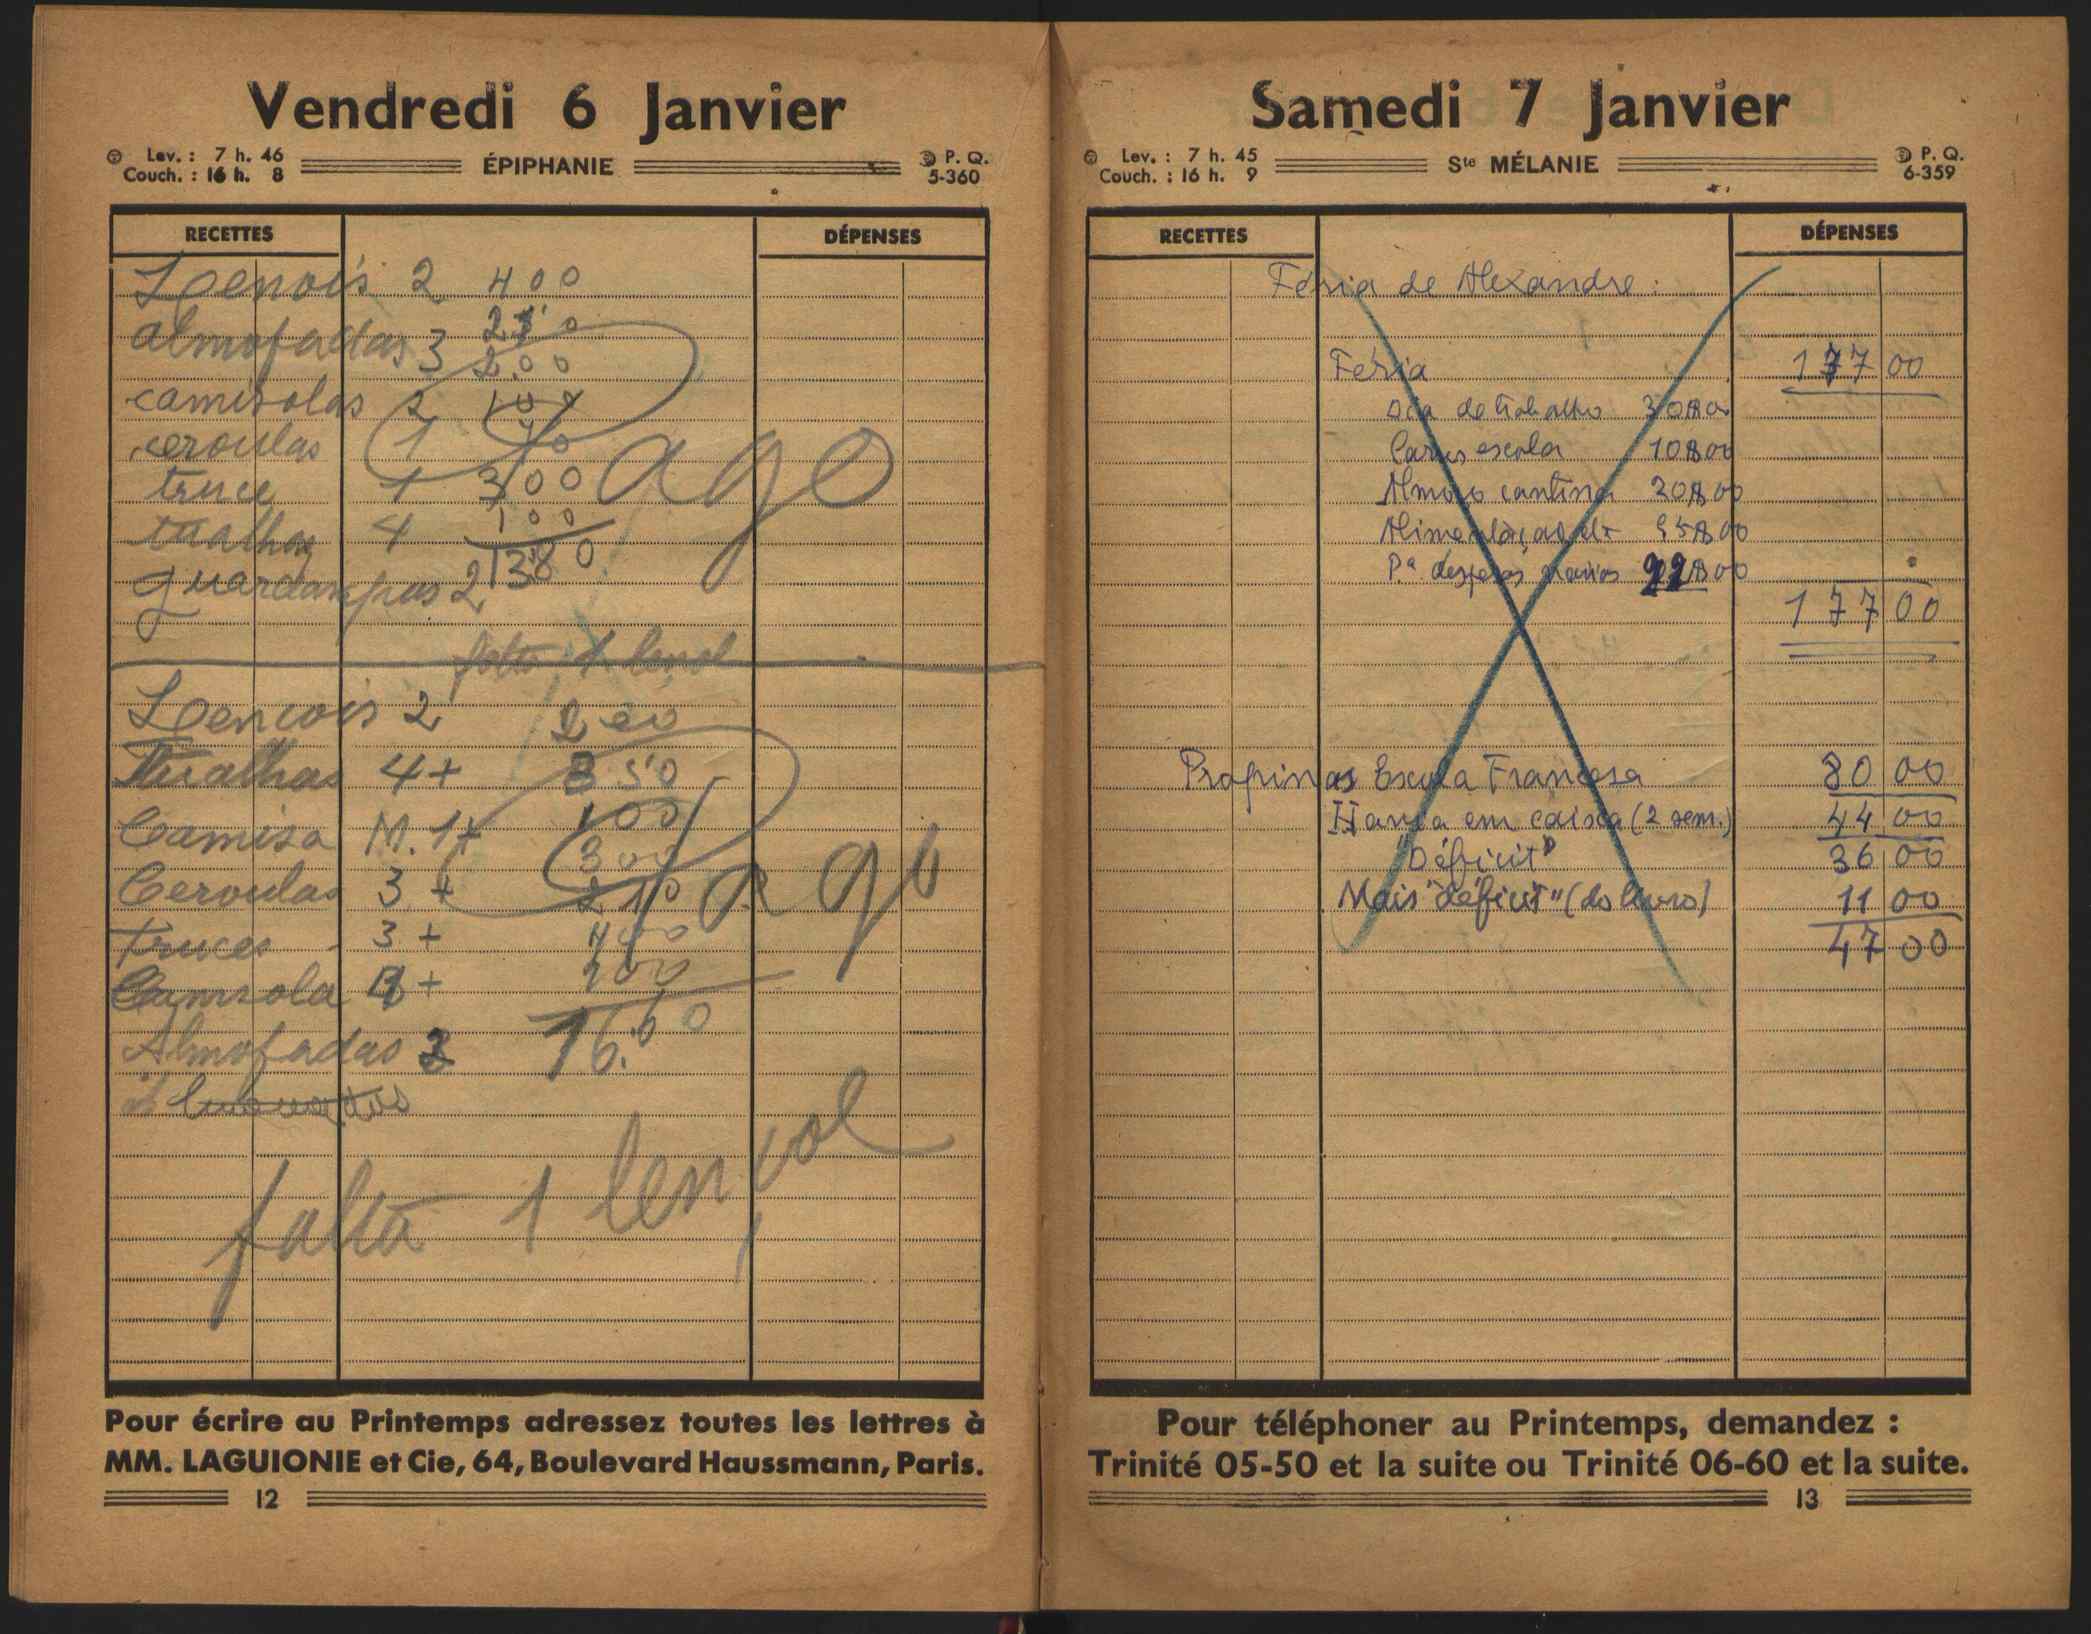 Vendredi 6 Janvier
Lev. : 7 h. 46
Couch. : 16 h. 8
ÉPIPHANIE
P. Q.
5-360
RECETTES
DÉPENSES
Lenois 2 400
almofadas 3
200
camisolas 2 100
ceroulas 1
truce 1 300
tualhas 4 100
1380
guardanapus 2
falta 1 lençol
Pago
Lencois 2 200
Tualhas 4+ 350
Camisa M. 1+ 100
Ceroulas 3 + 300
210
Truces 3 + 400
Camisola 1 + 200
16.60
Almofadas 2
Pago
falta 1 lençol
Pour écrire au Printemps adressez toutes les lettres à
MM. LAGUIONIE et Cie, 64, Boulevard Haussmann, Paris.
12
Samedi 7 Janvier
Lev. : 7 h. 45
Couch. : 16 h. 9
Ste MÉLANIE
P. Q.
6-359
RECETTES
DÉPENSES
Féria de Alexandre :
Féria 177 00
Dia de trabalho 30$00
Carros escola 10$00
Almoço cantina 20$00
Alimentação dt 95$00
Pª despesas várias 22$00
177 00
Propinas Escola Francesa 80 00
Havia em caixa (2 sem.) 44 00
"Déficit" 36 00
Mais "déficit" (do livro) 11 00
47 00
Pour téléphoner au Printemps, demandez :
Trinité 05-50 et la suite ou Trinité 06-60 et la suite.
13